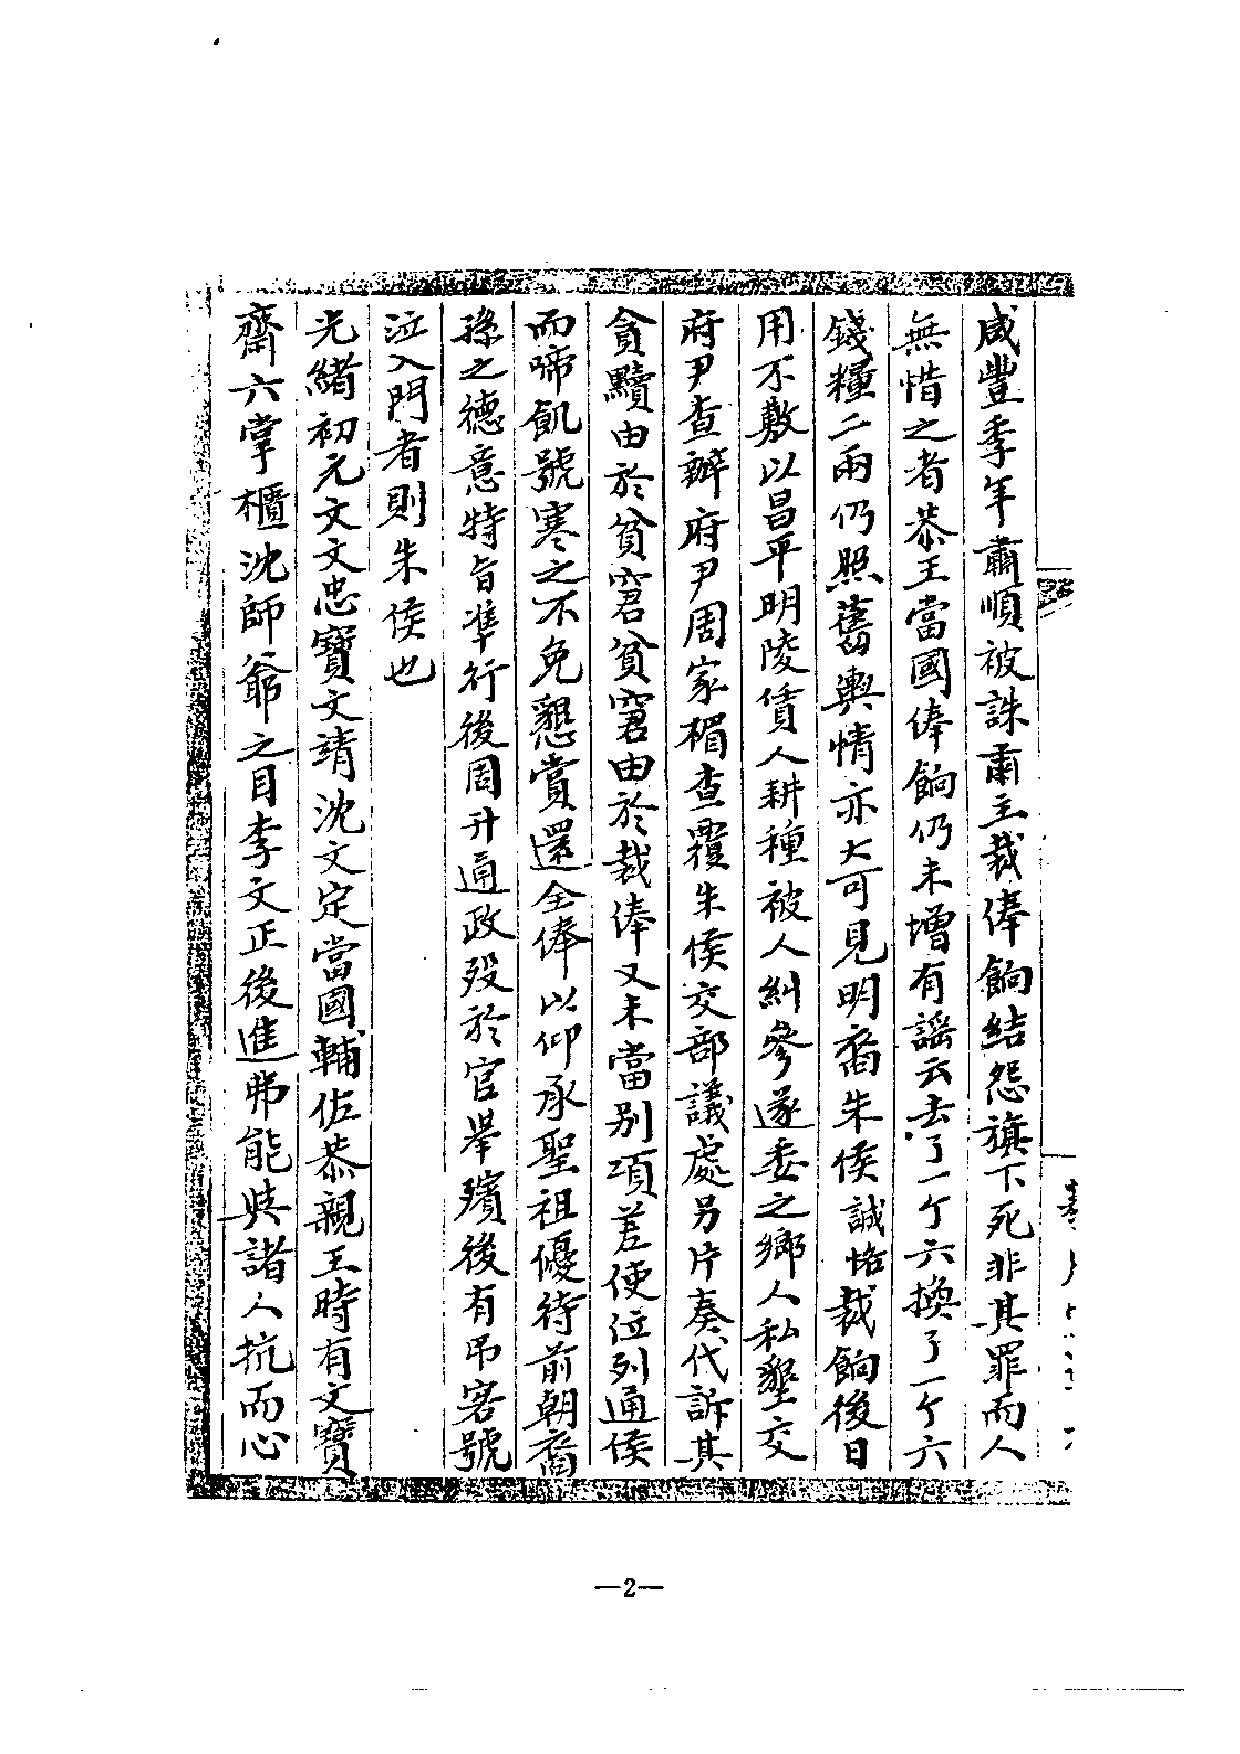 咸豐季年肅順被誅肅主裁俸餉結怨旗下死非其罪而人
無惜之者恭王當國俸餉仍未增有謡云去了一个六換了一个六
錢糧二兩仍照舊輿情亦大可見明裔朱侯誠恪裁餉後日
用不敷以昌平明陵賃人耕種被人糾參遂委之鄉人私墾交
府尹查辦府尹周家楣查覆朱侯交部議處另片奏代訴其
貪黷由於貧窘貧窘由於裁俸又未當別項差使泣列通侯
而啼飢號寒之不免懇賞還全俸以仰承聖祖優待前朝裔
孫之德意特旨準行後周升通政殁於官舉殯後有吊客號
泣入門者則朱侯也
光緒初元文文忠寶文靖沈文定當國輔佐恭親王時有文寶
齋六掌櫃沈師爺之目李文正後進弗能與諸人抗而心
—2—